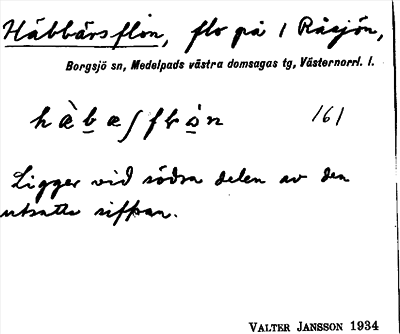 Häbbärsflon, flo på 1 Råsjön,
Borgsjö sn, Medelpads västra domsagas tg, Västernorrl. l.
hæ̀bæʃflòn 161
Ligger vid södra delen av den
utsatta siffran.
VALTER JANSSON 1934